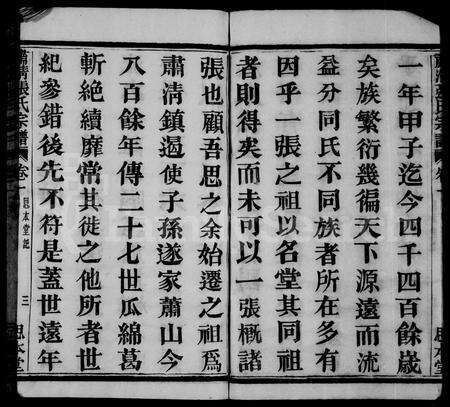 一年甲子迄今四千四百餘歲
矣族繁衍幾徧天下源遠而流
益分同氏不同族者所在多有
因乎一張之祖以名堂其同祖
者則得矣而未可以一張概諸
張也顧吾思之余始遷之祖爲
肅清鎮遏使子孫遂家蕭山今
八百餘年傳二十七世瓜綿葛
斬絶續靡常其徙之他所者世
紀參錯後先不符是蓋世遠年
蕭清張氏宗譜 卷一 思本堂記 三 思本堂